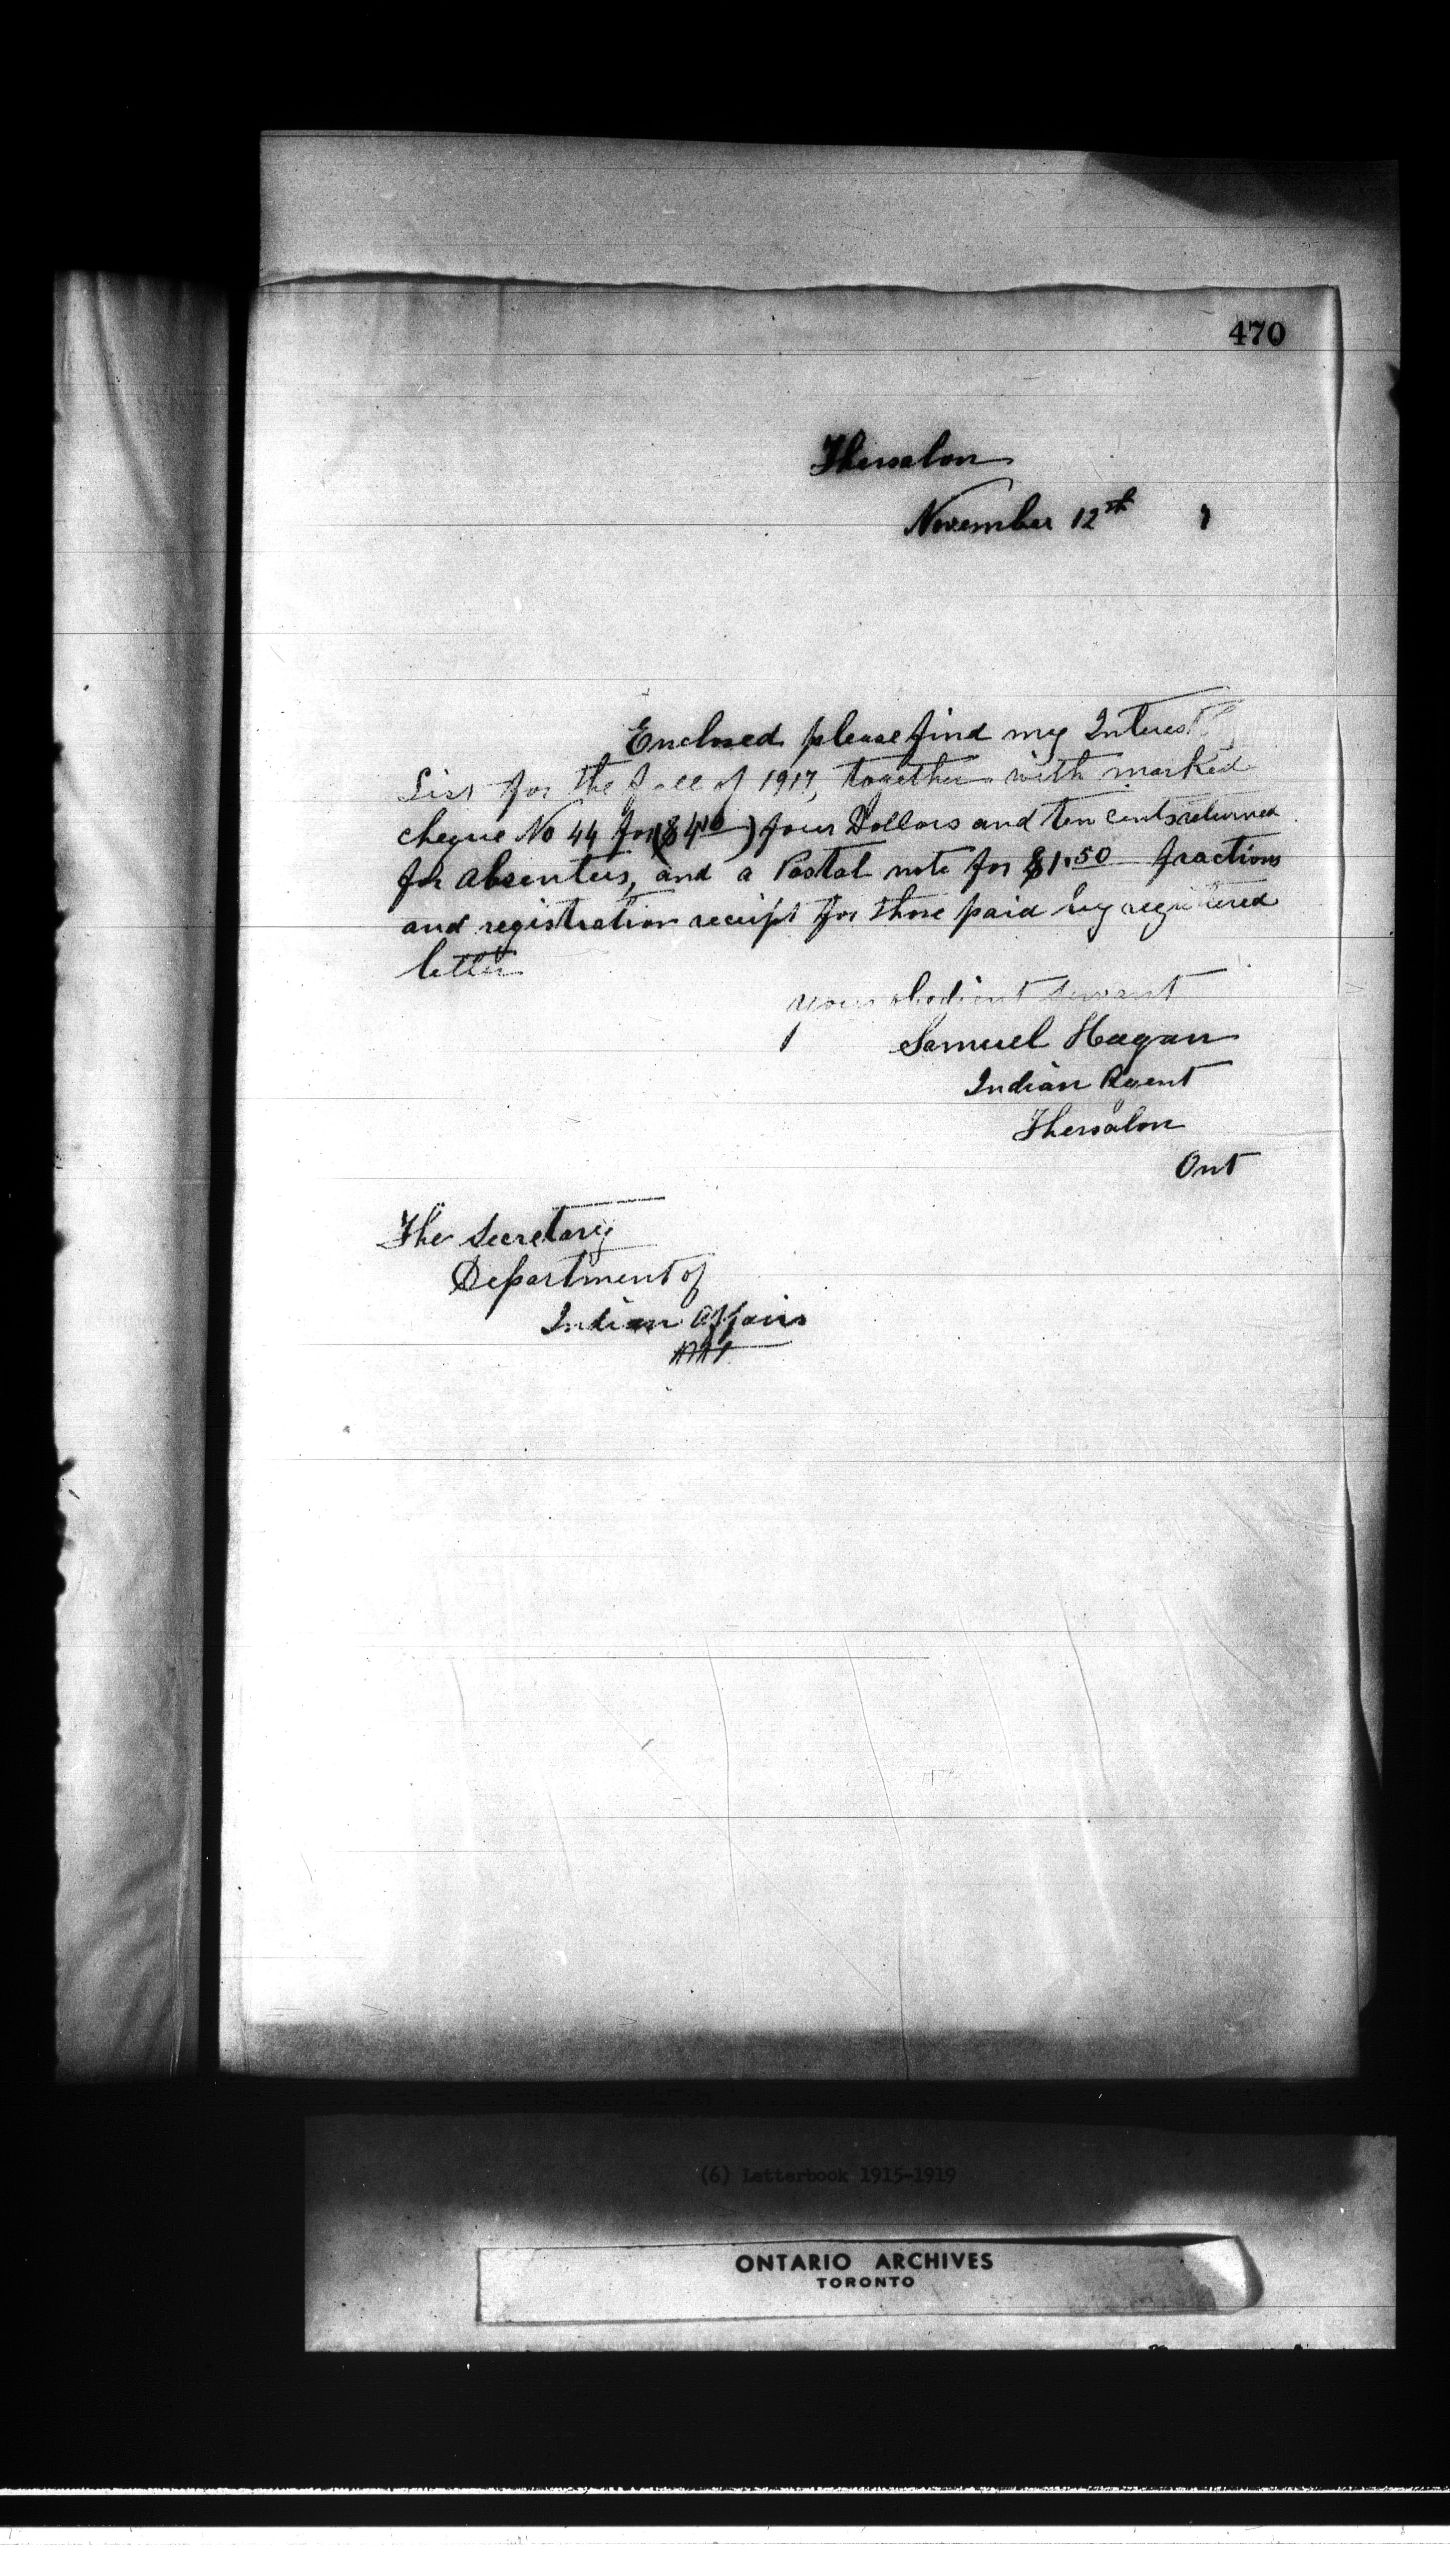 470
Thessalon
November 12th 7
Enclosed please find my Interest
List for the fall of 1917, together with marked
cheque No 44 for ($4.10) four Dollars and ten cents returned
for absentees, and a Postal note for $1.50 fractions
and registration receipt for those paid by registered
letter
your obedient servant
Samuel Hagan
Indian Agent
Thessalon
Ont
The Secretary
Department of
Indian Affairs
(6) Letterbook 1915-1919
ONTARIO ARCHIVES
TORONTO